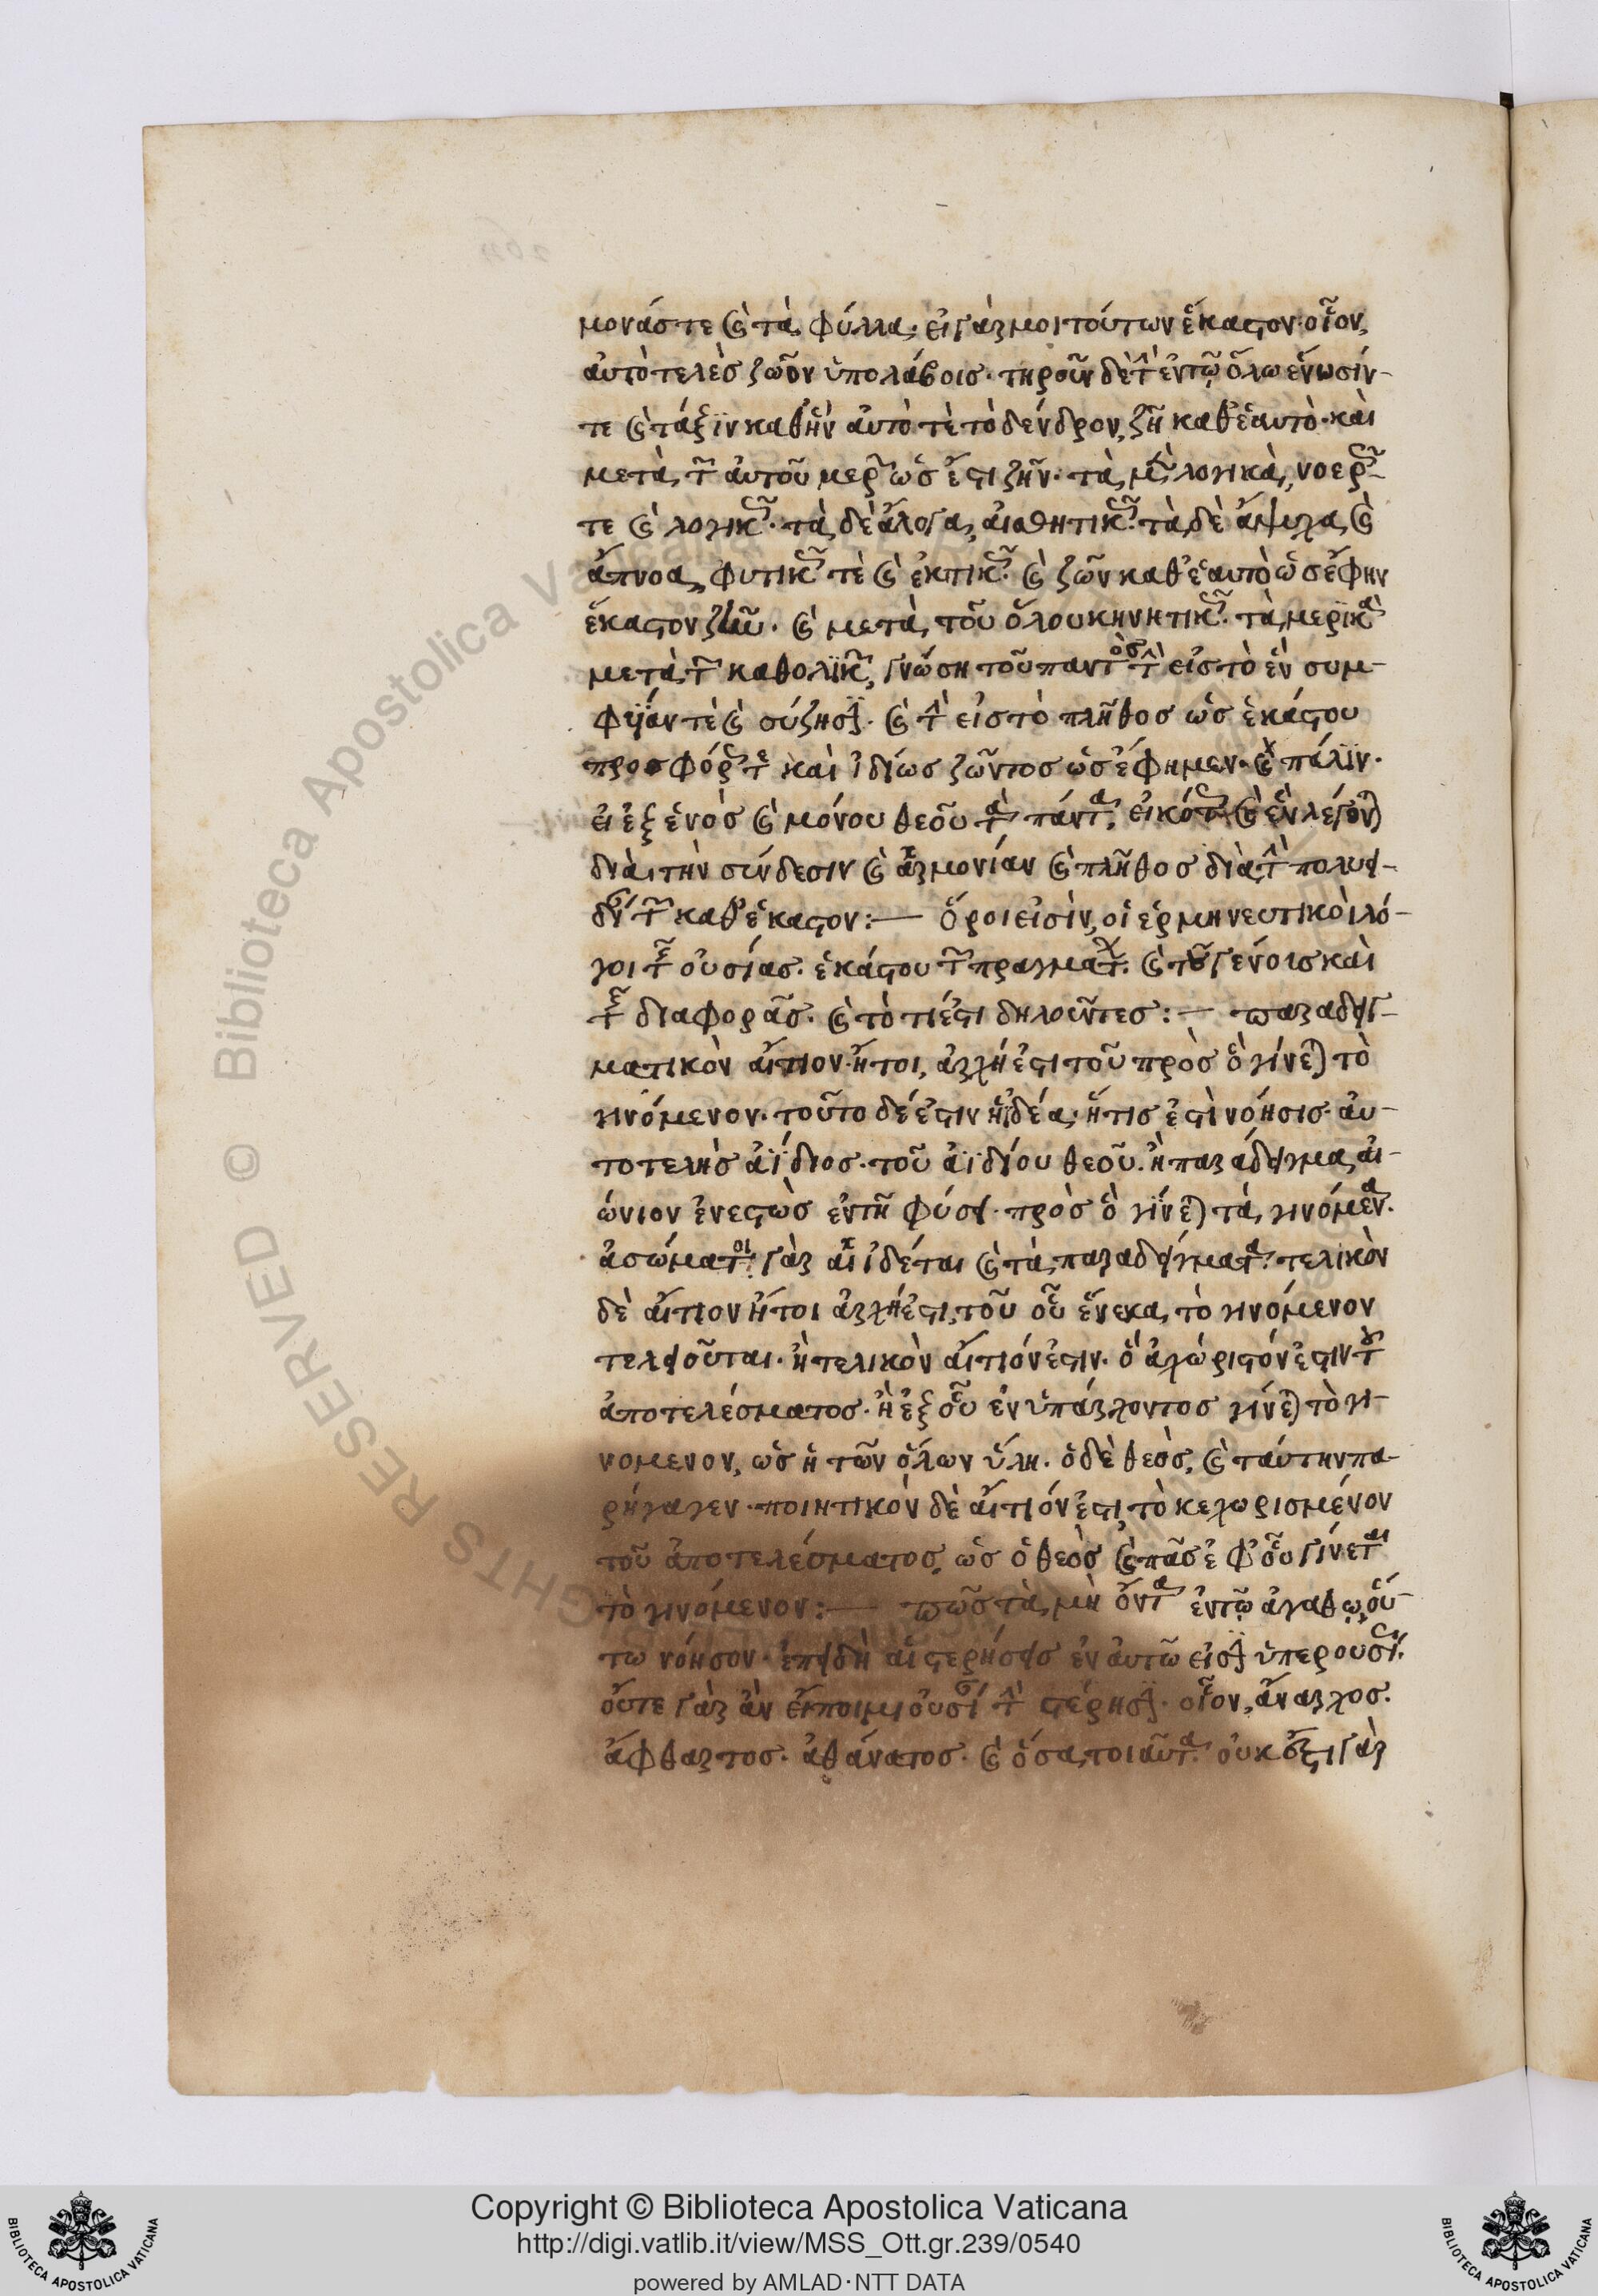 μονάς τε καὶ τὰ φύλλα· εἰ γάρ μοι τούτων ἕκαστον οἷον,
αὐτοτελὲς ζῶον ὑπολάβοις· τηροῦν δὲ τὴν ἐν τῷ ὅλω ἕνωσίν-
τε καὶ τάξϊν καθ' ἣν αὐτό τὲ τὸ δένδρον, ζῆ καθ' ἑαυτὸ· καὶ
μετὰ τῶν αὐτοῦ μερῶν ὡς ἔστι ζῆν· τὰ μὲν λογικὰ, νοερῶς
τε καὶ λογικῶς· τὰ δὲ ἄλογα, αἰσθητικῶς· τὰ δὲ ἄψυχα, καὶ
ἄπνοα, φυτικῶς τὲ καὶ ἑκτικῶς· καὶ ζῶν καθ' ἑαυτὸ ὡς ἔφην
ἕκαστον ζῶν· καὶ μετὰ τοῦ ὅλου κηνητικῶς· τὰ μερϊκὰ
μετὰ τῶν καθολϊκῶν, γνώση τοῦ παντὸς τὴν εἰς τὸ ἓν συμ-
φυΐαν τὲ καὶ σύζησϊν· καὶ τὴν εἰς τὸ πλῆθος ὡς ἑκάστου
προσφόρως τε καὶ ἰδίως ζῶντος ὡς ἔφημεν· καὶ πάλϊν·
εἰ ἐξ ἑνὸς καὶ μόνου θεοῦ τὰ πάντα, εἰκότως καὶ ἓν λέγονται
διὰ τὴν σύνδεσιν καὶ ἁρμονίαν καὶ πλῆθος διὰ τὴν πολυει-
δίαν τῶν καθ' ἕκαστον:— ὅροι εἰσὶν, οἱ ἑρμηνευτικοὶ λό-
γοι τῆς οὐσίας· ἑκάστου τῶν πραγμάτων· καὶ τοῦ γένους καὶ
τῆς διαφορᾶς· καὶ τὸ τί ἐστι δηλοῦντες:— παραδειγ-
ματικὸν αἴτιον· ἤτοι, ἀρχή ἐστι τοῦ πρὸς ὃ γίνεται τὸ
γινόμενον· τοῦτο δέ ἐστιν ἡ ἰδέα· ἥτις ἐστὶ νόησις· αὐ-
τοτελὴς ἀΐδιος· τοῦ ἀϊδίου θεοῦ· ἢ παράδειγμα, αἰ-
ώνιον ἐνεστὼς ἐν τῆ φύσει· πρὸς ὃ γίνεται τὰ γινόμενα·
ἀσώματοι γὰρ αἱ ἰδέαι καὶ τὰ παραδείγματα· τελικὸν
δὲ αἴτιον ἤτοι ἀρχή ἐστι, τοῦ οὗ ἕνεκα, τὸ γινόμενον
τελειοῦται· ἢ τελικὸν αἴτιόν ἐστιν· ὃ ἀχώριστόν ἐστιν τοῦ
ἀποτελέσματος· ἢ ἐξ οὗ ἐνυπάρχοντος γίνεται τὸ γι-
νομενον, ὡς ἡ τῶν ὅλων ὕλη· ὁ δὲ θεὸς, καὶ ταύτην πα-
ρήγαγεν· ποιητικὸν δὲ αἴτιόν ἐστι, τὸ κεχωρισμένον
τοῦ ἀποτελέσματος, ὡς ὁ θεὸς καὶ πᾶς ἐφ' οὗ γίνεται
τὸ γινόμενον:— πῶς τὰ μὴ ὄντα ἐν τῷ ἀγαθῷ, οὕ-
τω νόησον· ἐπειδὴ αἱ στερήσεις ἐν αὐτῶ εἰσϊν ὑπερουσίως·
οὔτε γὰρ ἂν εἴποιμι οὐσίαν τὴν στέρησϊν· οἷον, ἄναρχος·
ἄφθαρτος· ἀθάνατος· καὶ ὅσα τοιαῦτα· οὐκ ἔστι γὰρ
Copyright © Biblioteca Apostolica Vaticana
http://digi.vatlib.it/view/MSS_Ott.gr.239/0540
powered by AMLAD·NTT DATA